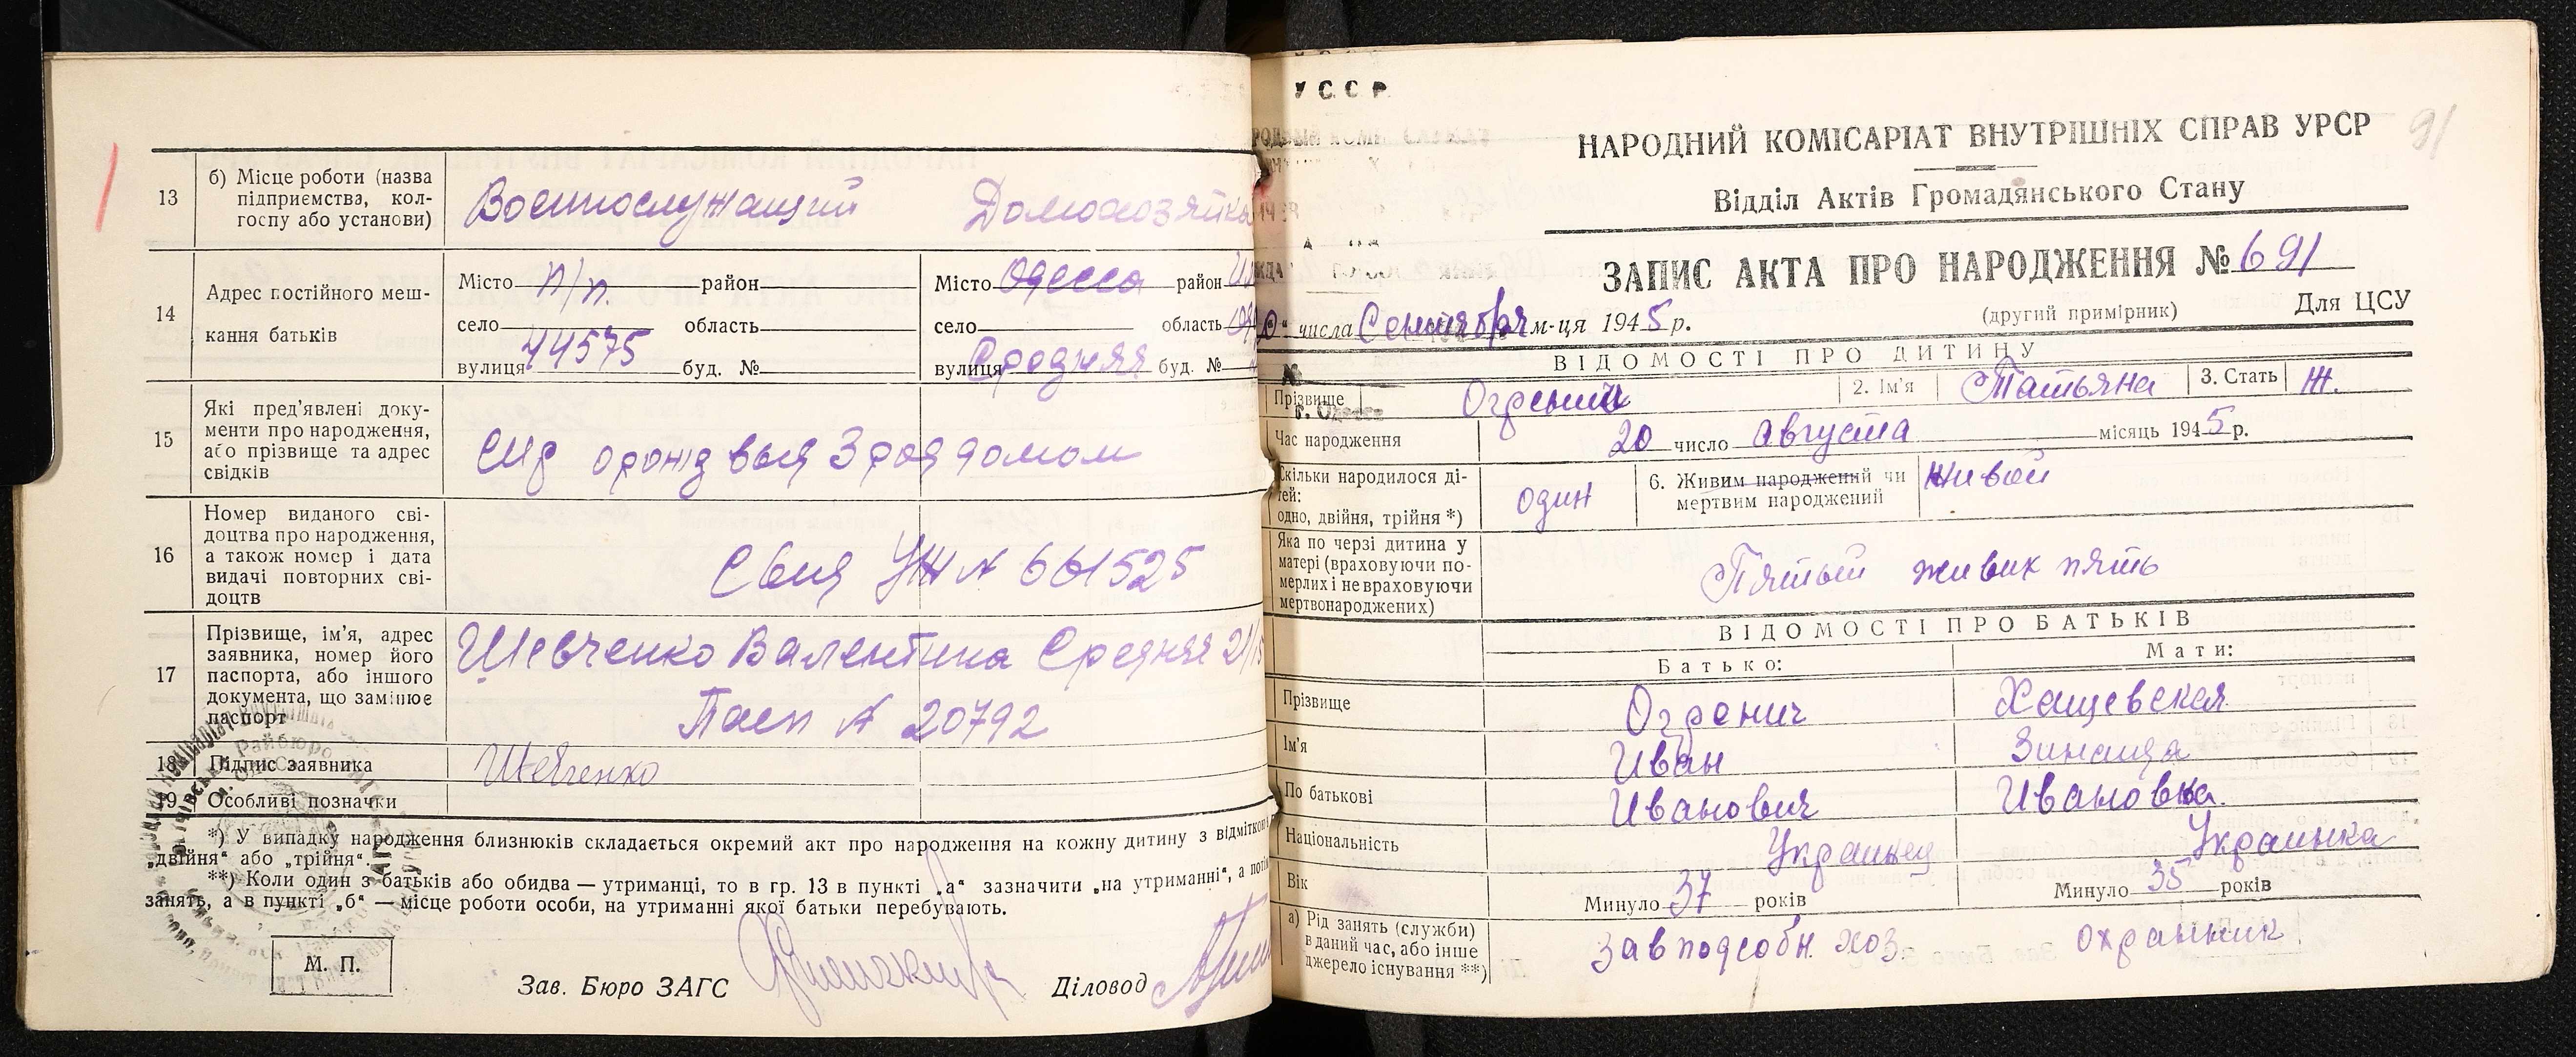 13
б) Місце роботи (назва підприємства, кол-
госпу або установи)
Военнослужащий Домохозяйка
14
Адрес постійного меш-
кання батьків
Місто п/п. район
село область
вулиця 44575 буд. №
Місто Одесса район
село область
вулиця Средняя буд. №
15
Які пред'явлені доку-
менти про народження,
або прізвище та адрес
свідків
выд 3 род домом
16
Номер виданого сві-
доцтва про народження,
а також номер і дата
видачі повторних сві-
доцтв
УЖ № 661525
17
Прізвище, ім'я, адрес
заявника, номер його
паспорта, або іншого
документа, що замінює
паспорт
Шевченко Валентина Средняя
Пасп № 20792
18
Підпис заявника
Шевченко
19
Особливі позначки
*) У випадку народження близнюків складається окремий акт про народження на кожну дитину з
„двійня" або „трійня".
**) Коли один з батьків або обидва — утриманці, то в гр. 13 в пункті „а" зазначити „на утриманні",
занять, а в пункті „б" — місце роботи особи, на утриманні якої батьки перебувають.
М. П.
Зав. Бюро ЗАГС
Діловод
УССР
91
НАРОДНИЙ КОМІСАРІАТ ВНУТРІШНІХ СПРАВ УРСР
Відділ Актів Громадянського Стану
ЗАПИС АКТА ПРО НАРОДЖЕННЯ № 691
(другий примірник) Для ЦСУ
числа Сентября м-ця 1945 р.
ВІДОМОСТІ ПРО ДИТИНУ
Прізвище Огренич 2. Ім'я Татьяна 3. Стать Ж.
Час народження 20 число Августа місяць 1945 р.
Скільки народилося ді-
тей:
одно, двійня, трійня *)
один
6. Живим народжений чи
мертвим народжений
Живой
Яка по черзі дитина у
матері (враховуючи по-
мерлих і не враховуючи
мертвонароджених)
Пятый живых пять
ВІДОМОСТІ ПРО БАТЬКІВ
Батько: Мати:
Прізвище Огренич Хащевская
Ім'я Иван Зинаида
По батькові Иванович Ивановна.
Національність Украинец Украинка
Вік Минуло 37 років Минуло 35 років
а) Рід занять (служби)
в даний час, або інше
джерело існування **)
Зав подсобн. хоз. охранник